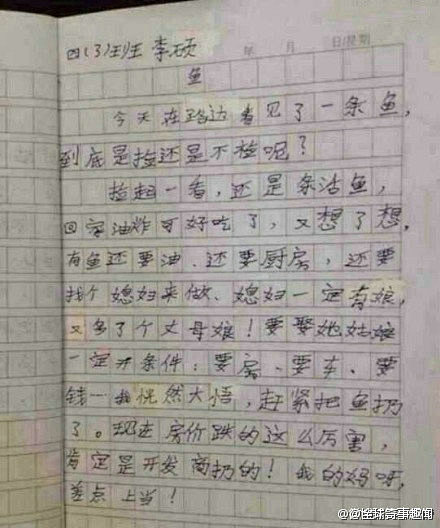 四(3)班 李硕
年 月 日/星期
鱼
今天在路边看见了一条鱼,
到底是捡还是不捡呢?
捡起一看,还是条活鱼,
回家油炸可好吃了,又想了想,
有鱼还要油、还要厨房,还要
找个媳妇来做、媳妇一定有娘,
又多了个丈母娘!要娶她姑娘
一定开条件:要房、要车、要
钱…我恍然大悟,赶紧把鱼扔
了。现在房价跌的这么厉害,
肯定是开发商扔的!我的妈呀,
差点上当!
@全球奇事趣闻